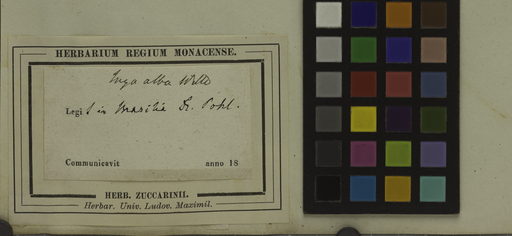 HERBARIUM REGIUM MONACENSE.
Inga alba Willd
Legit in Brasilia Dr. Pohl.
Communicavit anno 18
HERB. ZUCCARINII.
Herbar. Univ. Ludov. Maximil.